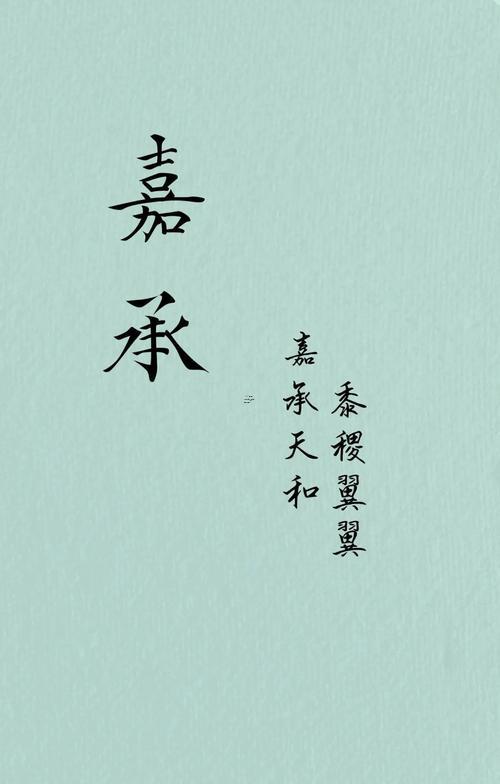 嘉承
嘉承天和
黍稷翼翼